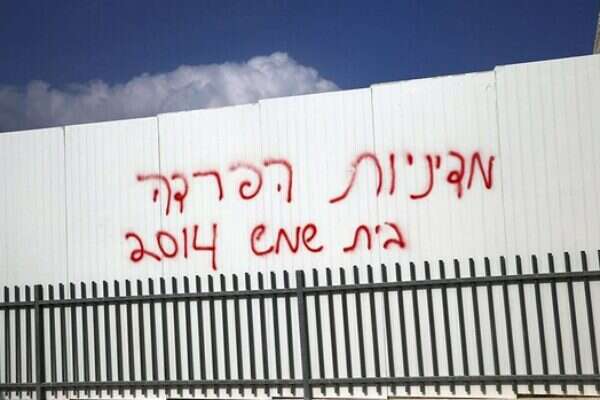 מדיניות הפרדה
בית שמש 2014